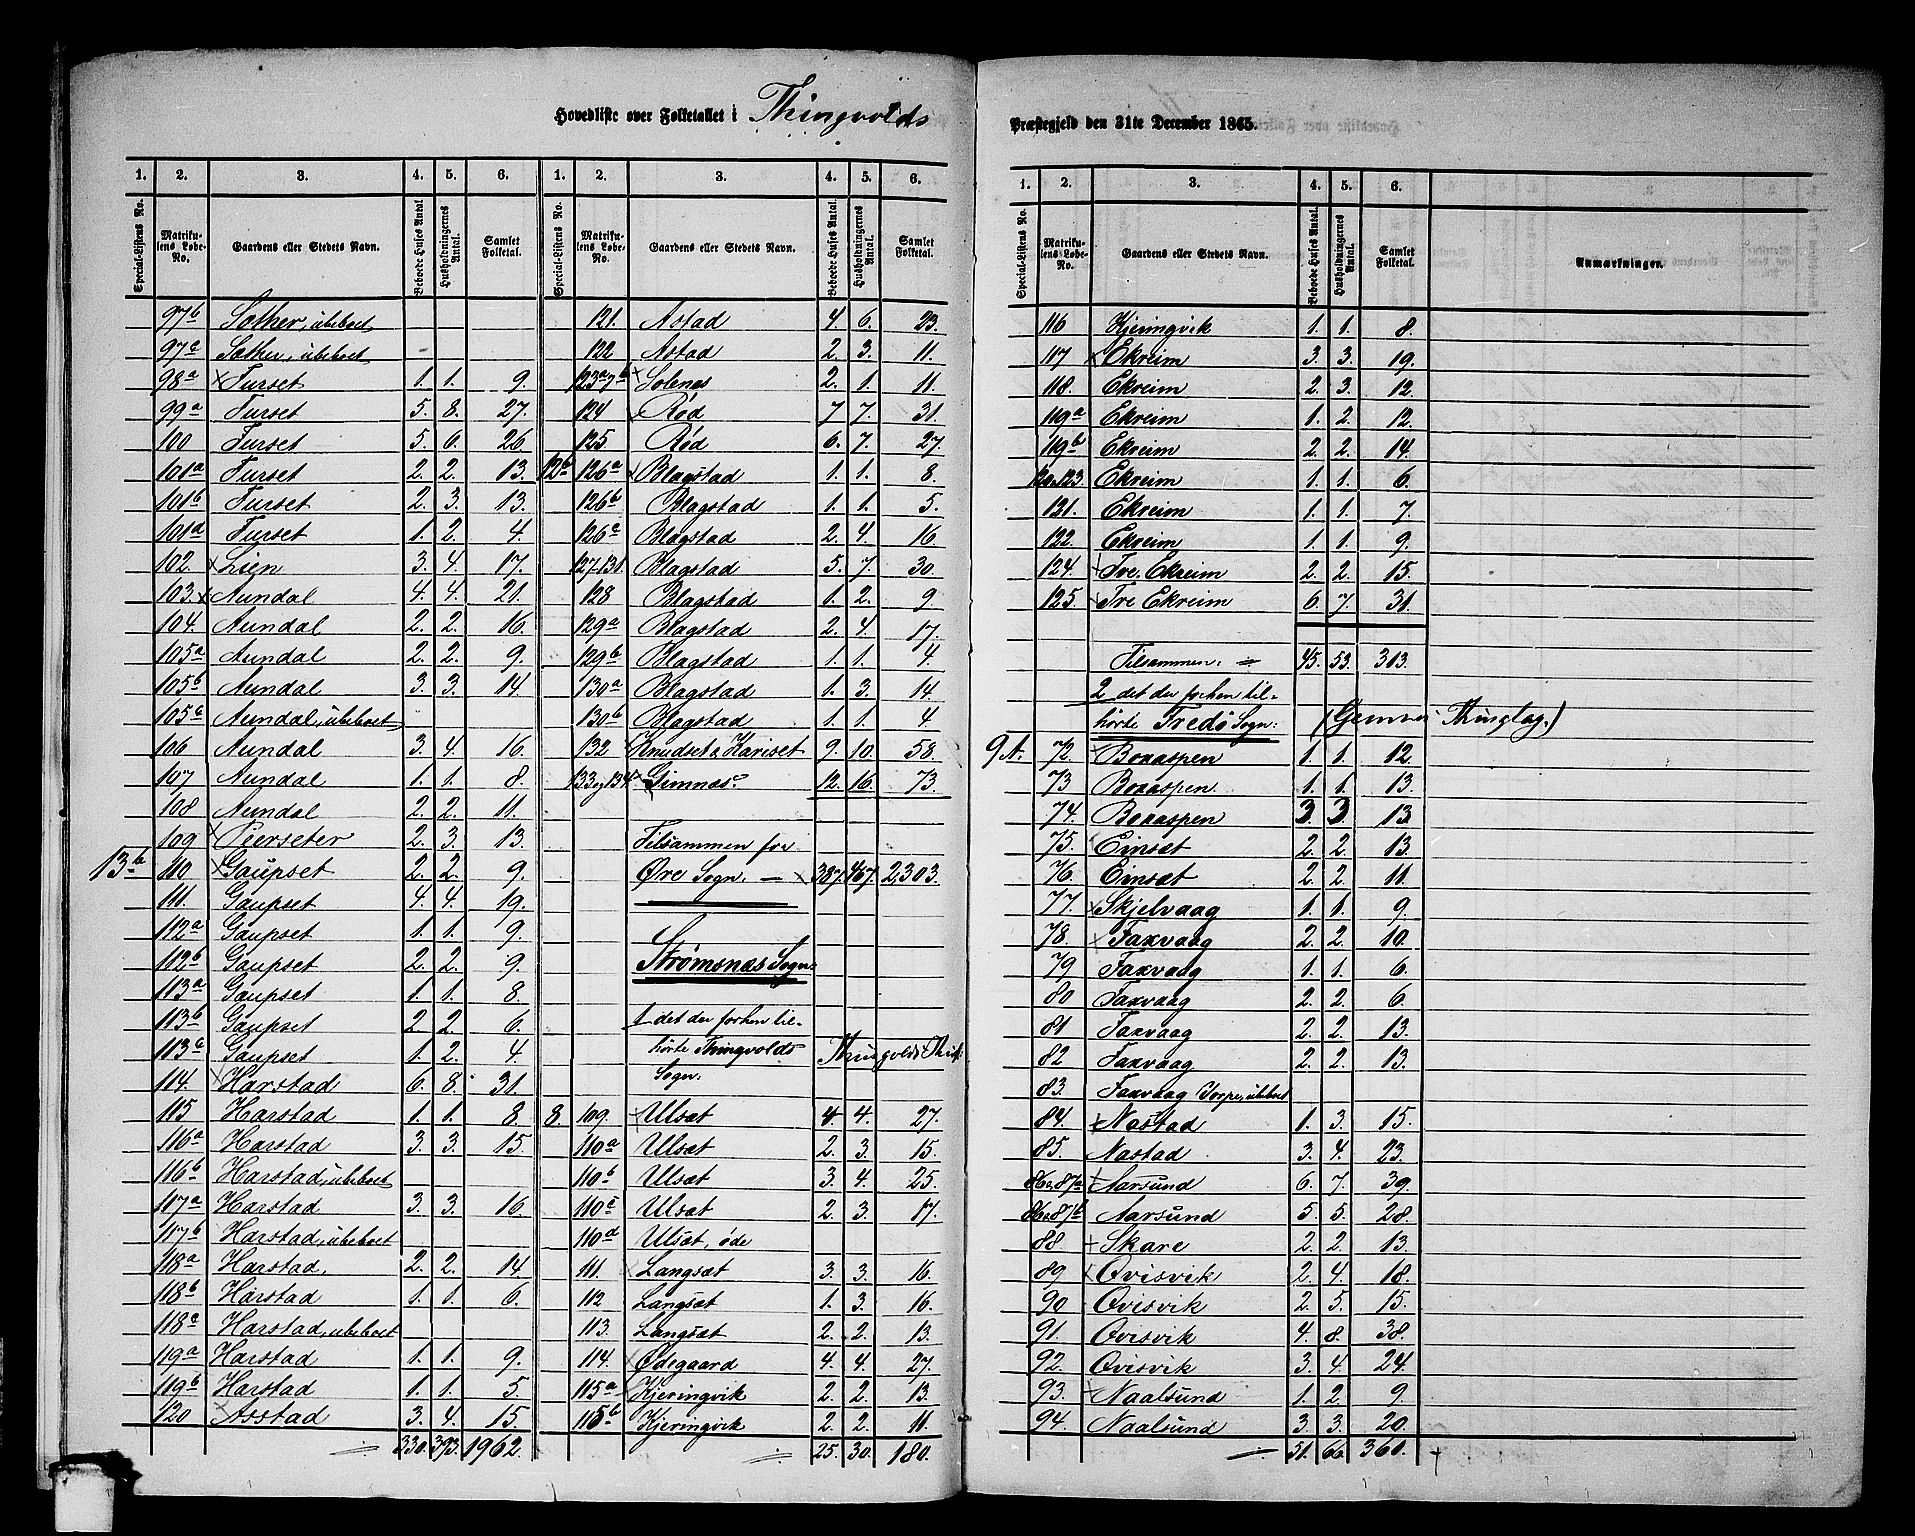 Hovedliste over Folketallet i Thingvolds
1. 2. 3. 4. 5. 6. 1. 2. 3. 4. 5. 6.
Special-Listens No. Matrikulens Løbe-No. Gaardens eller Stedets Navn. Beboede Huses Antal. Husholdningernes Antal. Samlet Folketal. Special-Listens No. Matrikulens Løbe-No. Gaardens eller Stedets Navn. Beboede Huses Antal. Husholdningernes Antal. Samlet Folketal.
97b Sæther, ubeboet
97c Sæther, ubeboet
98a Furset 1. 1. 9.
99a Furset 5. 8. 27.
100 Furset 5. 6. 26.
101a Furset 2. 2. 13.
101b Furset 2. 3. 13.
101d Furset 1. 2. 4.
102. Lien 3. 4. 17.
103. Aundal 4. 4. 21.
104. Aundal 2. 2. 16.
105a Aundal 2. 2. 9.
105b Aundal 3. 3. 14.
105c Aundal, ubeboet
106 Aundal 3. 4. 16.
107 Aundal 1. 1. 8.
108 Aundal 2. 2. 11.
109 Peerseter 2. 3. 13.
13b 110 Gaupset 2. 2. 9.
111. Gaupset 4. 4. 19.
112a Gaupset 1. 1. 9.
112b Gaupset 2. 2. 9.
113a Gaupset 1. 1. 8.
113b Gaupset 2. 2. 6.
113c Gaupset 1. 2. 4.
114. Harstad 6. 8. 31.
115 Harstad 1. 1. 8
116a Harstad 3. 3. 15.
116b Harstad, ubeboet
117a Harstad 3. 3. 16.
117b Harstad, ubeboet
118a Harstad. 2. 2. 14
118b Harstad 1. 1. 6.
118c Harstad, ubeboet
119a Harstad 1. 1. 9.
119b Harstad 1. 1. 5.
120 Asstad 3. 4. 15.
330. 393. 1962.
121. Astad 4. 6. 23.
122 Astad 2. 3. 11.
123a & b Solenæs 2. 1. 11.
124 Rød 7 7. 31.
125 Rød 6. 7. 27.
12b 126a Blagstad 1. 1. 8.
126b Blagstad 1. 1. 5.
126a Blagstad 2. 4. 16
127-131. Blagstad 5. 7. 30.
128 Blagstad 1. 2. 9.
129a Blagstad 2. 4. 17.
129b Blagstad 1. 1. 4.
130a Blagstad 1. 3. 14.
130b Blagstad 1. 1. 4.
132 Knudset & Hariset 9. 10. 58.
133 og 134 Gimnæs. 12. 16. 73.
Tilsammen for
Øre Sogn. — 387. 467. 2,303.
Strømsnæs Sogn:
1 det der forhen til-
hörte Thingvolds Thingvolds Thil:
Sogn:
8. 109. Ulsæt 4 4. 27.
110a Ulsæt 2. 3. 15.
110b Ulsæt 3. 4. 25.
110c Ulsæt 2. 3. 17.
110d Ulsæt, öde
111. Langsæt 3. 3. 16.
112 Langsæt 1. 3. 16.
113. Langsæt 2. 2. 13.
114. Ødegaard 4. 4. 27.
115a Kjeringvik 2. 2. 13.
115b Kjeringvik 2. 2. 11.
25. 30. 180.
Præstegjeld den 31te December 1865.
1. 2. 3. 4. 5. 6.
Special-Listens No. Matrikulens Løbe-No. Gaardens eller Stedets Navn. Beboede Huses Antal. Husholdningernes Antal. Samlet Folketal. Anmærkninger.
116 Kjeringvik 1. 1. 8.
117. Ekreim 3. 3. 19.
118. Ekreim 2. 3. 12.
119a Ekreim 1. 2. 12.
119b Ekreim 2. 2. 14.
120 & 123. Ekreim 1. 1. 6.
121. Ekreim 1. 1. 7.
122. Ekreim 1. 1. 9.
124. Tre Ekreim 2. 2. 15.
125. Tre Ekreim 6. 7. 31.
Tilsammen. 45. 53. 313.
2 det der forhen til-
hörte Fredö Sogn: (Gemnæs Thinglag.)
9A. 72. Boaaspen 1. 1. 12.
73 Boaaspen 1. 1. 13.
74. Boaaspen 3. 3 13
75. Einsæt 2. 2. 13.
76. Einsæt 2. 2. 11.
77. Skjelvaag 1. 1. 9.
78. Faxvaag 2. 2. 10.
79 Faxvaag 1. 1. 6.
80 Faxvaag 2. 2. 6.
81 Faxvaag 2. 2. 13.
82 Faxvaag 2. 2. 13.
83. Faxvaag Torpe, ubeboet
84. Nastad 1. 3. 15.
85. Nastad 3. 4. 23.
86 & 87a Aarsund 6. 7. 39.
86 & 87b Aarsund 5. 5. 28.
88 Skare 2. 2. 13.
89 Qvisvik 2. 4. 18.
90 Qvisvik 2. 5. 15.
91. Qvisvik 4. 8. 38.
92. Qvisvik 3. 4. 24.
93. Naalsund 1. 2. 9.
94. Naalsund 3. 3. 20.
51. 66. 360.